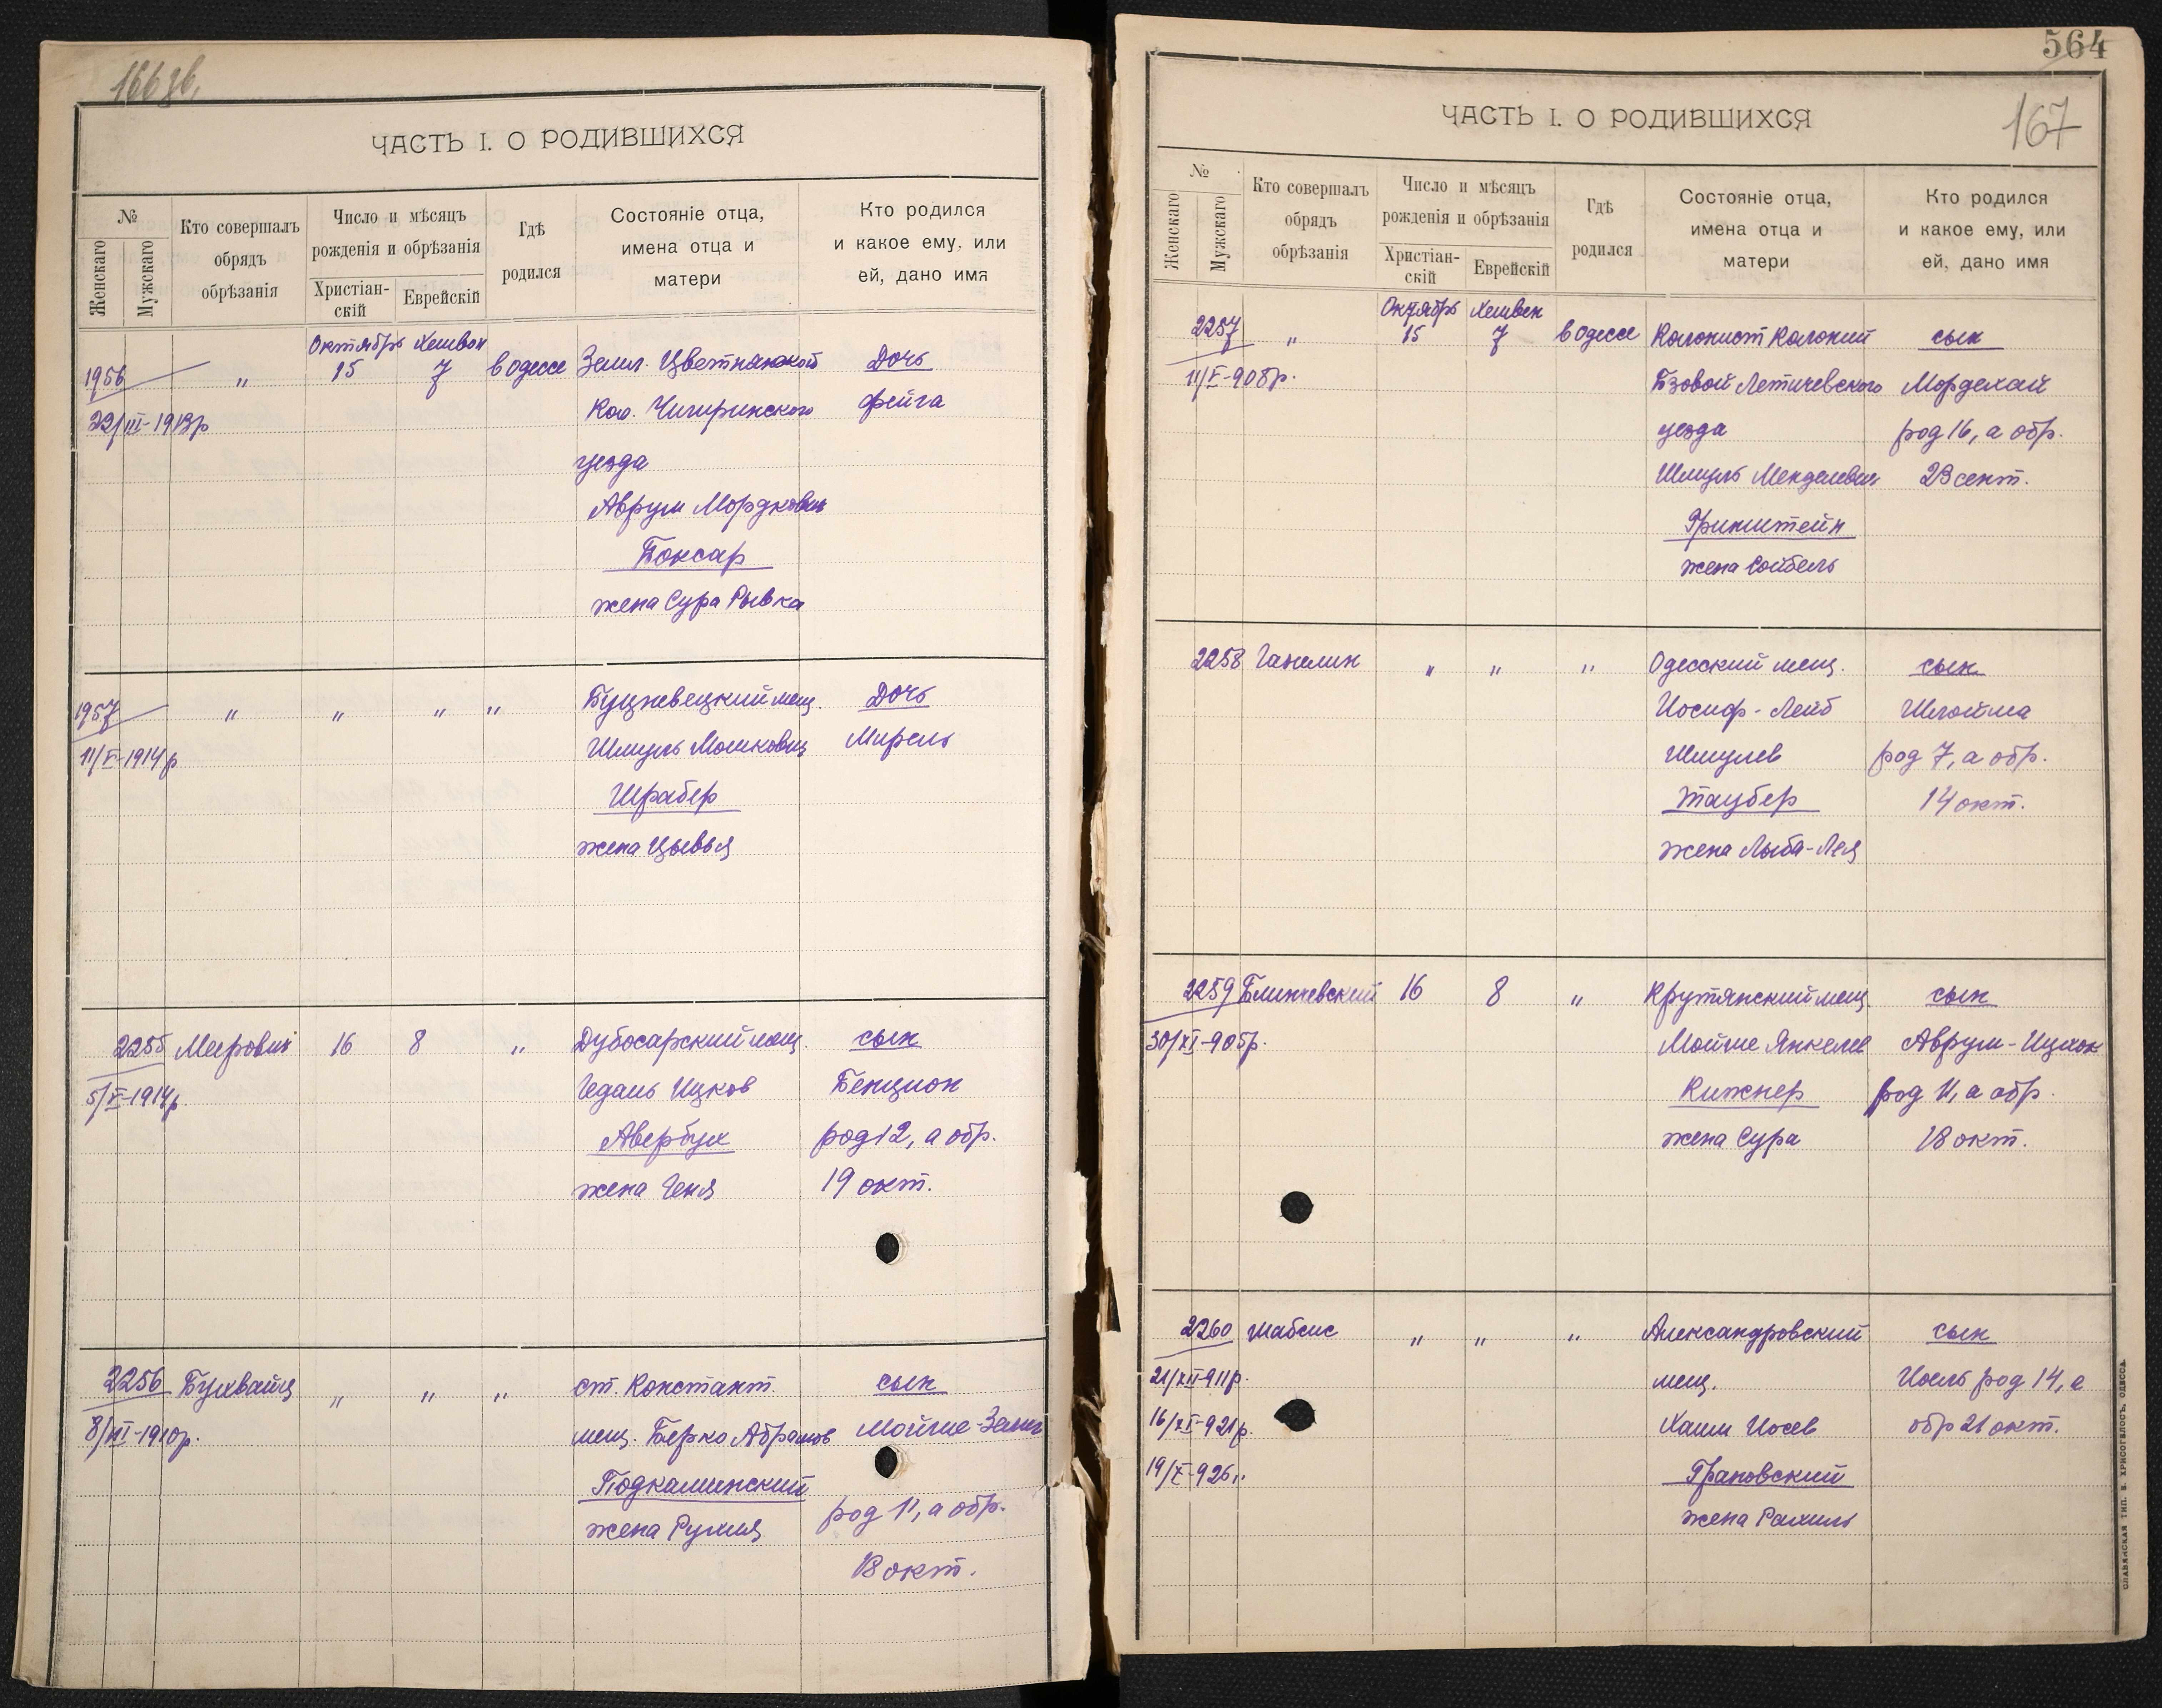 166 зв.
ЧАСТЬ I. О РОДИВШИХСЯ
№
Женскаго
Мужскаго
Кто совершалъ
обрядъ
обрѣзанія
Число и мѣсяцъ
рожденія и обрѣзанія
Христіан-
скій
Еврейскій
Гдѣ
родился
Состояніе отца,
имена отца и
матери
Кто родился
и какое ему, или
ей, дано имя
Октябрь Хешван
1956 " 15 7 в Одессе Земл. Цветнянской Дочь
22/III-1913р Кол. Чигиринского Фейга
уезда
Аврум Мордкович
Боксар
жена Сура Рывка
1957 " " " " Буцневецкий мещ. Дочь
11/V-1914р Шмуль Мошкович Мирель
Шрабер
жена Цывья
2255 Меерович 16 8 " Дубосарский мещ. сын
5/V-1914р Гедаль Ицков Бенцион
Авербух род 12, а обр.
жена Геня 19 окт.
2256 Бухвайц " " " ст. Констант. сын
8/VII-1910р. мещ. Берко Абрамов Мойше-Зелиг
Подкаминский
жена Рухля род 11, а обр.
18 окт.
564
167
ЧАСТЬ I. О РОДИВШИХСЯ
№
Женскаго
Мужскаго
Кто совершалъ
обрядъ
обрѣзанія
Число и мѣсяцъ
рожденія и обрѣзанія
Христіан-
скій
Еврейскій
Гдѣ
родился
Состояніе отца,
имена отца и
матери
Кто родился
и какое ему, или
ей, дано имя
Октябрь Хешван
2257 " 15 7 в Одессе Колонист Колонии сын
11/V-908р. Бзовой Летичевского Мордехай
уезда род 16, а обр.
Шмуль Менделевич 23 сент.
Гринштейн
жена Сойбель
2258 Ганелин " " " Одесский мещ. сын
Иосиф-Лейб Шлойма
Шмулев род 7, а обр.
Таубер 14 окт.
жена Лыба-Лея
2259 Блинчевский 16 8 " Крутянский мещ. сын
30/XI-905р. Мойше Янкелев Аврум-Ицхок
Кижнер род 11, а обр.
жена Сура 18 окт.
2260 Шабсис " " " Александровский сын
21/XII-911р. мещ. Иоель род 14, а
16/XI-921р. Хаим Иосев обр 21 окт.
19/X-926 " Грановский
жена Рахиль
СЛАВЯНСКАЯ ТИП. Е. ХРИСОГЕЛОСЪ, ОДЕССА.